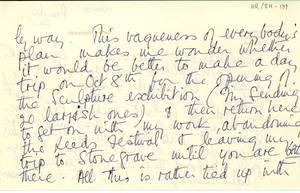 HR/BH-199
by way. This vagueness of everybody's
plan makes me wonder whether
it would be better to make a day
trip on Oct 8th for the opening of
the Sculpture exhibition (I'm sending
20 largish ones) & then return here
to get on with my work, abandoning
the Leeds Festival & leaving my
trip to Stonegrave until you are both
there. All this is rather tied up with